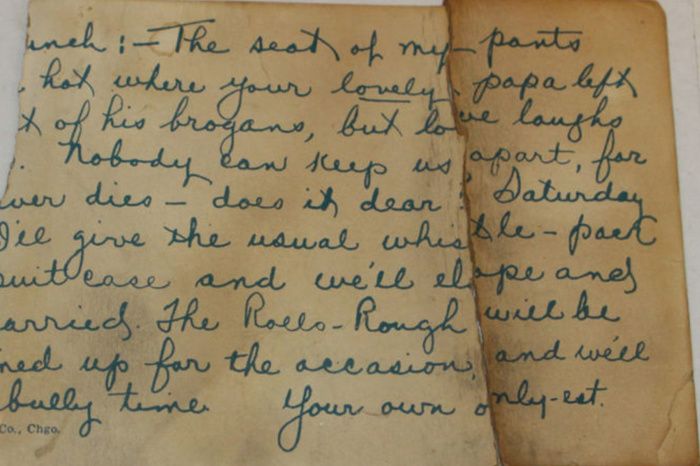 unch:— The seat of my pants
hot where your lovely papa left
t of his brogans, but love laughs
. Nobody can keep us apart, for
ver dies — does it dear? Saturday
I'll give the usual whistle — pack
suitcase and we'll elope and
arried. The Rolls-Rough will be
ned up for the occasion, and we'll
bully time. Your own only-est.
Co., Chgo.